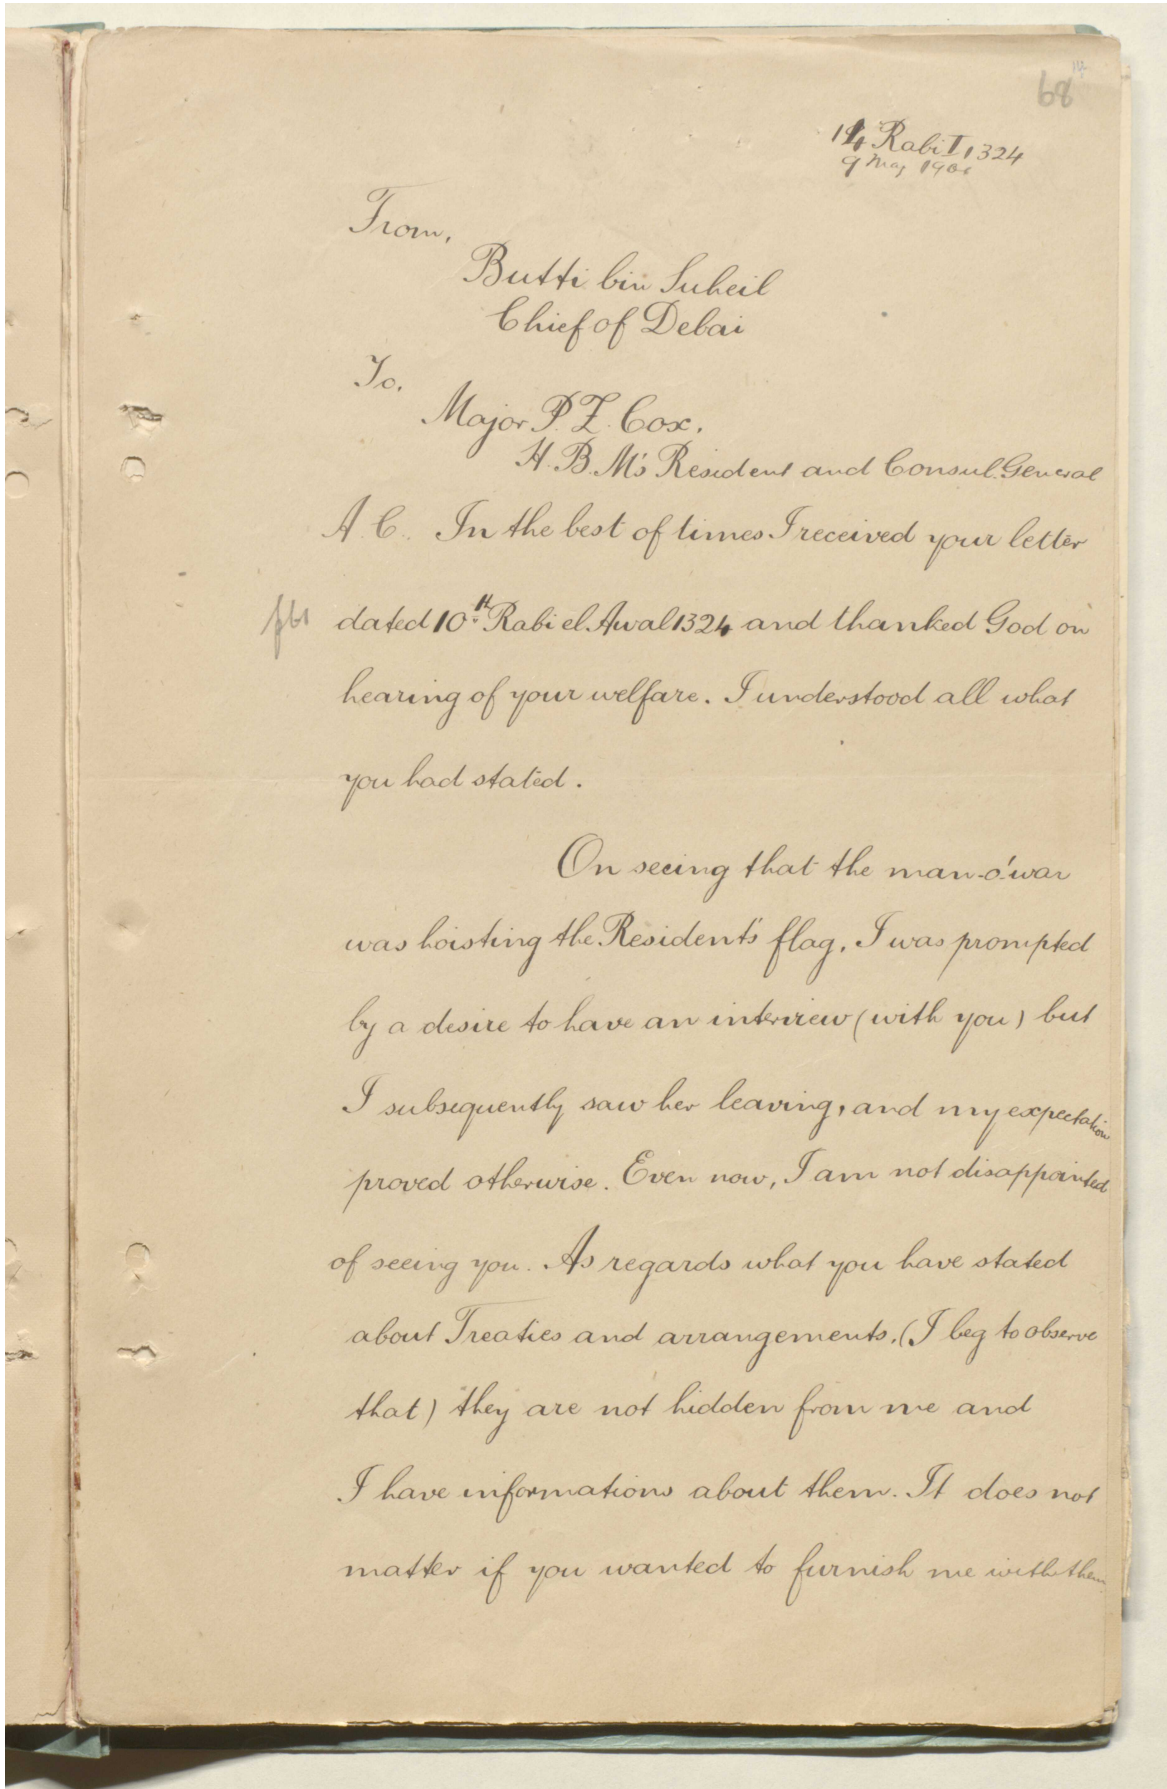 68
14 Rabi I 1324
9 May 1906
From,
Butti bin Suheil
Chief of Debai
To,
Major P. Z. Cox.
H. B. M's Resident and Consul. General
A. C. In the best of times I received your letter
dated 10th Rabi el Awal 1324 and thanked God on
hearing of your welfare. I understood all what
you had stated.
On seeing that the man-o'-war
was hoisting the Resident's flag, I was prompted
by a desire to have an interview (with you) but
I subsequently saw her leaving, and my expectation
proved otherwise. Even now, I am not disappointed
of seeing you. As regards what you have stated
about Treaties and arrangements, (I beg to observe
that) they are not hidden from me and
I have informations about them. It does not
matter if you wanted to furnish me with them